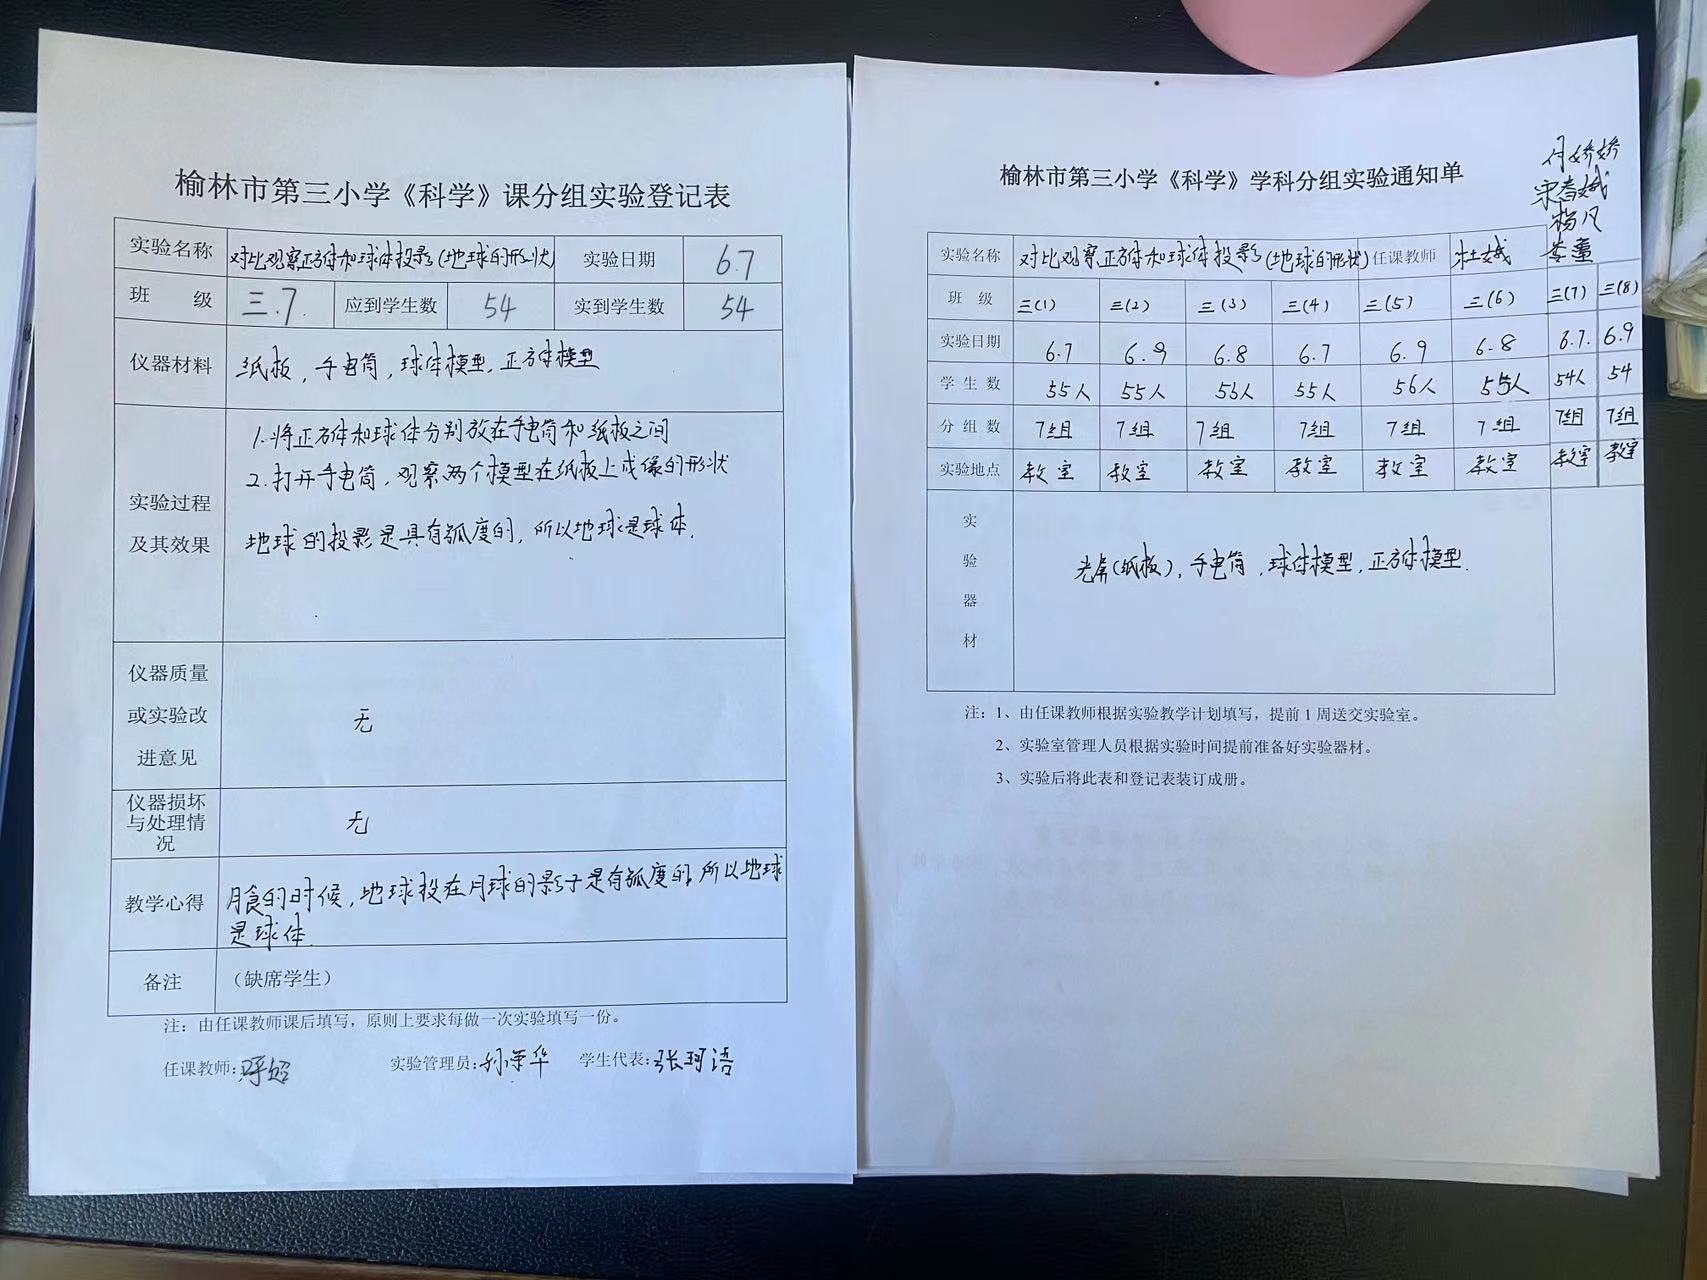 榆林市第三小学《科学》课分组实验登记表
实验名称 对比观察正方体和球体投影(地球的形状) 实验日期 6.7
班 级 三.7 应到学生数 54 实到学生数 54
仪器材料 纸板,手电筒,球体模型,正方体模型
实验过程及其效果
1.将正方体和球体分别放在手电筒和纸板之间
2.打开手电筒,观察两个模型在纸板上成像的形状
地球的投影是具有弧度的,所以地球是球体.
仪器质量或实验改进意见 无
仪器损坏与处理情况 无
教学心得 月食的时候,地球投在月球的影子是有弧度的,所以地球
是球体.
备注 (缺席学生)
注:由任课教师课后填写,原则上要求每做一次实验填写一份。
任课教师: 实验管理员: 学生代表:张珂语
榆林市第三小学《科学》学科分组实验通知单
杨凡
实验名称 对比观察正方体和球体投影(地球的形状) 任课教师 杜娥
班 级 三(1) 三(2) 三(3) 三(4) 三(5) 三(6) 三(7) 三(8)
实验日期 6.7 6.9 6.8 6.7 6.9 6.8 6.7. 6.9
学 生 数 55人 55人 55人 56人 55人 54人 54
分 组 数 7组 7组 7组 7组 7组 7组 7组 7组
实验地点 教室 教室 教室 教室 教室 教室 教室 教室
实验器材 光屏(纸板),手电筒,球体模型,正方体模型.
注:1、由任课教师根据实验教学计划填写,提前1周送交实验室。
2、实验室管理人员根据实验时间提前准备好实验器材。
3、实验后将此表和登记表装订成册。